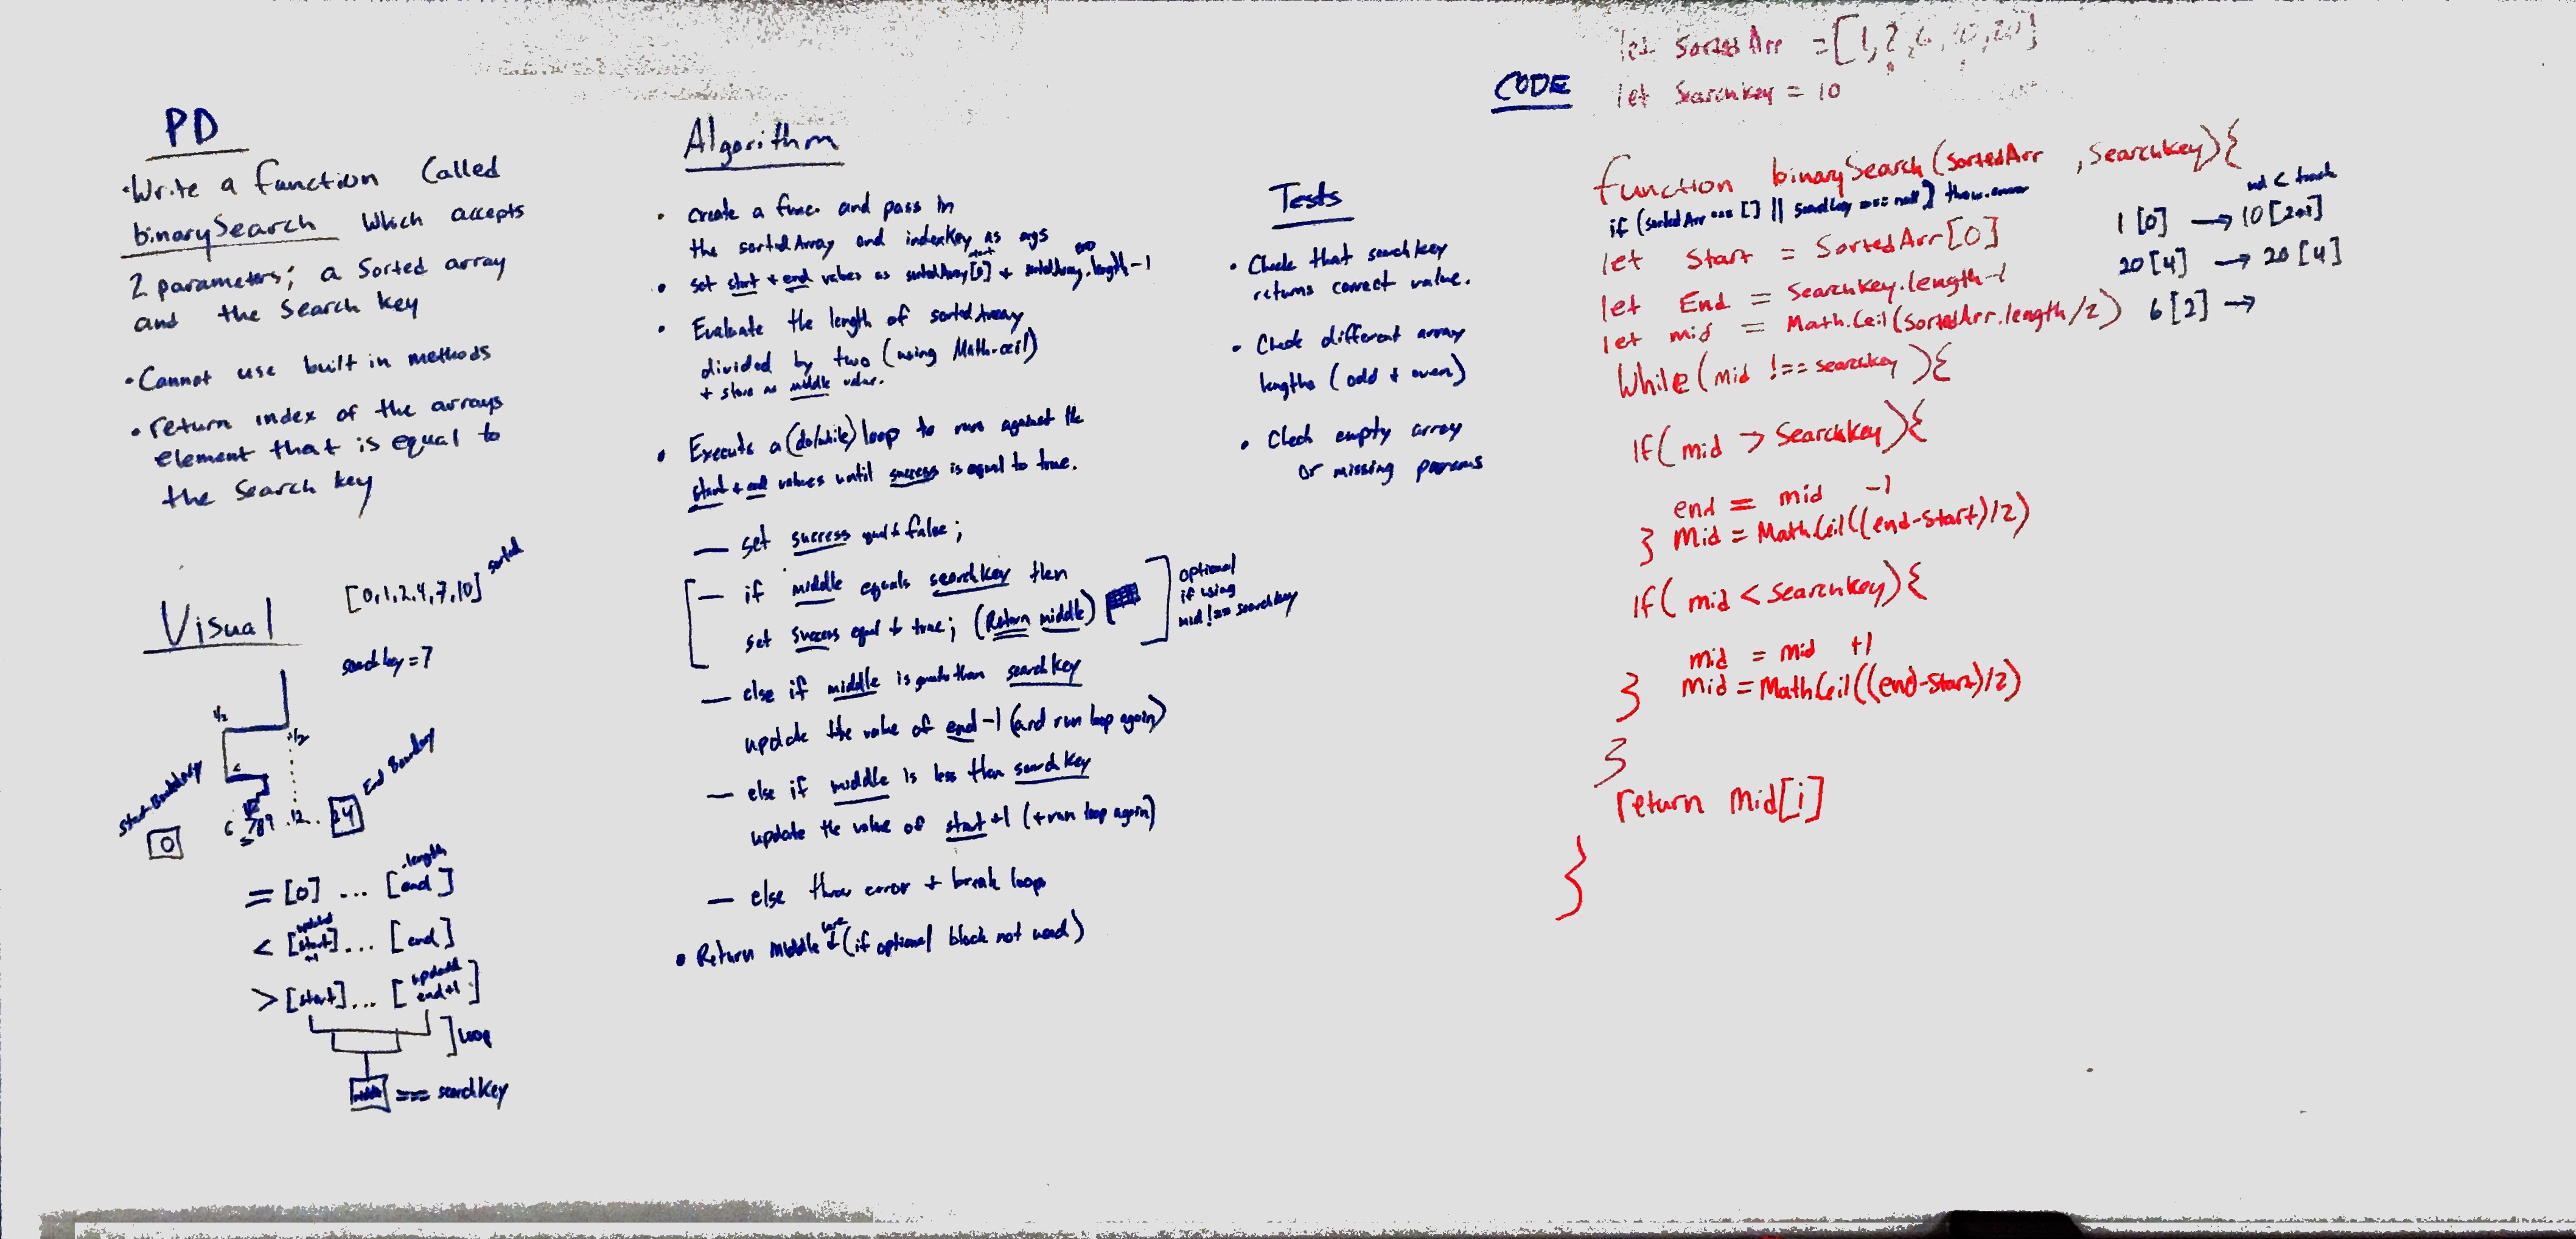 PD
• Write a function Called
binarySearch which accepts
2 parameters; a Sorted array
and the Search key
• Cannot use built in methods
• return index of the arrays
element that is equal to
the Search key
Visual
[0,1,2,4,7,10] sorted
searchkey = 7
1/2
1/2
Start Boundary
End Boundary
0
6 789 .12. 24
= [0] ... [end] .length
< [start] ... [end]
updated
+1
> [start] ... [end+1]
update
] loop
middle === searchKey
Algorithm
• create a func. and pass in
the sortedArray and indexKey as args
• set start + end values as sortedArray[0] + sortedArray.length-1
start
end
• Evaluate the length of sortedArray
divided by two (using Math.ceil)
+ store as middle value.
• Execute a (do/while) loop to run against the
start + end values until success is equal to true.
— set success equal to false;
— if middle equals searchKey then
set success equal to true; (Return middle)
optional
if using
mid !== searchkey
— else if middle is greater than searchKey
update the value of end -1 (and run loop again)
— else if middle is less than searchKey
update the value of start +1 (+ run loop again)
— else throw error + break loop
• Return middle (if optional block not used)
Tests
• Check that searchkey
returns correct value.
• Check different array
lengths (odd + even)
• Check empty array
or missing params
CODE
let SortedArr = [1,2,6,10,20]
let Searchkey = 10
function binarySearch(SortedArr , Searchkey){
if (sortedArr === [] || searchkey === null) throw.error
let Start = SortedArr[0]
let End = Searchkey.length-1
let mid = Math.Ceil(SortedArr.length/2)
While(mid !== searchkey){
If( mid > Searchkey){
end = mid -1
} Mid = Math.Ceil((end-Start)/2)
If( mid < Searchkey){
mid = mid +1
} mid = Math.Ceil((end-Start)/2)
}
return Mid[i]
}
1 [0] → 10 [2+1]
20 [4] → 20 [4]
6 [2] →